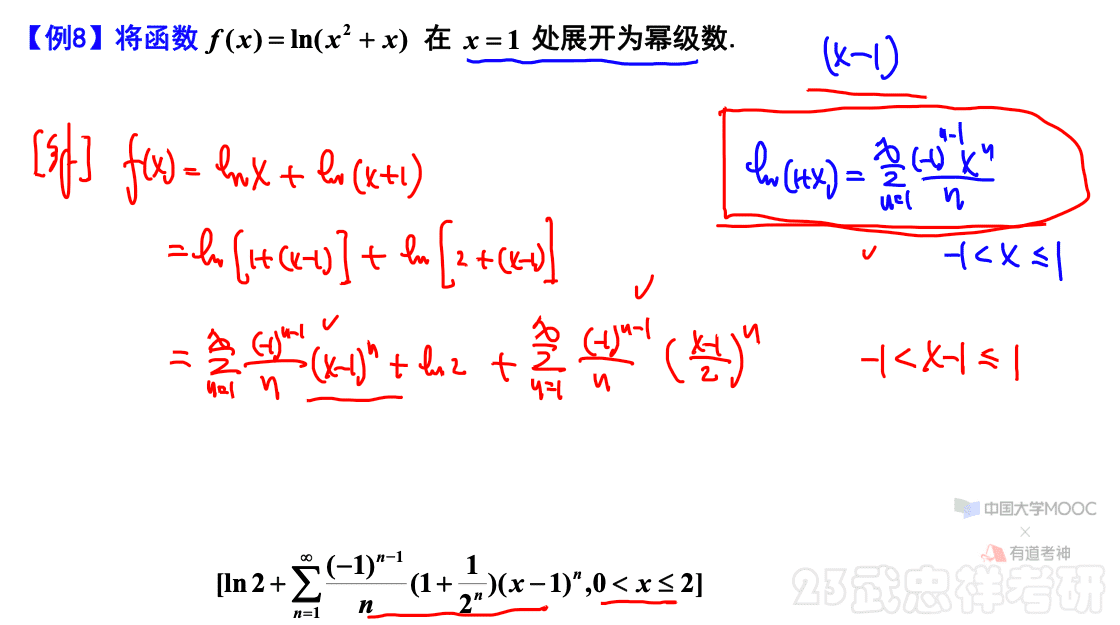 【例8】将函数 f(x) = ln(x² + x) 在 x = 1 处展开为幂级数.
(x-1)
[解] f(x) = ln x + ln(x+1)
ln(1+x) = ∑_{n=1}^{∞} (-1)^{n-1} x^n / n
-1 < x ≤ 1
= ln[1+(x-1)] + ln[2+(x-1)]
= ∑_{n=1}^{∞} (-1)^{n-1}/n (x-1)^n + ln 2 + ∑_{n=1}^{∞} (-1)^{n-1}/n ((x-1)/2)^n -1 < x-1 ≤ 1
中国大学MOOC
×
有道考神
[ln 2 + ∑_{n=1}^{∞} (-1)^{n-1}/n (1 + 1/2^n)(x-1)^n, 0 < x ≤ 2]
23武忠祥考研